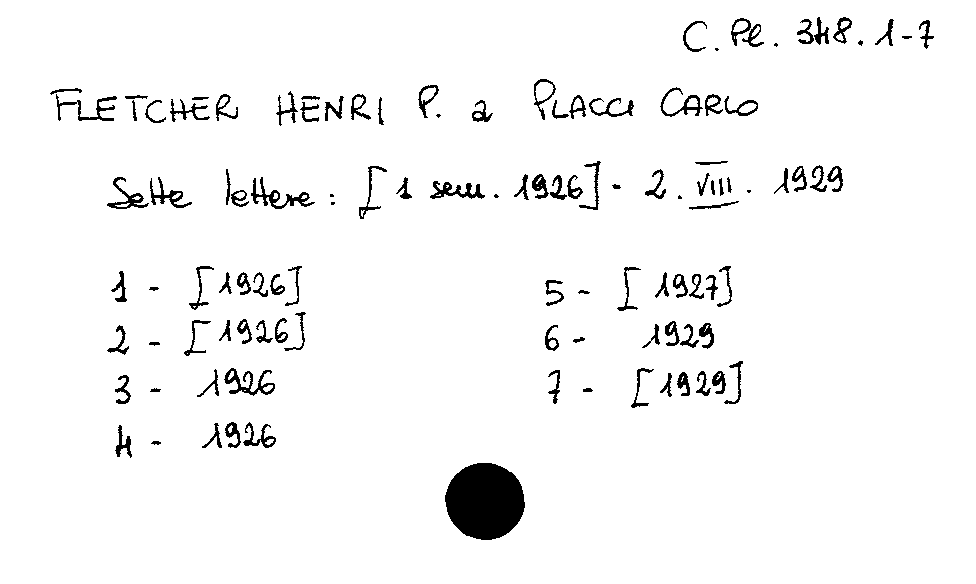 C. Pl. 348. 1-7
FLETCHER HENRI P. a PLACCI CARLO
Sette lettere: [1 sem. 1926] - 2. VIII. 1929
1 - [1926]
2 - [1926]
3 - 1926
4 - 1926
5 - [1927]
6 - 1929
7 - [1929]